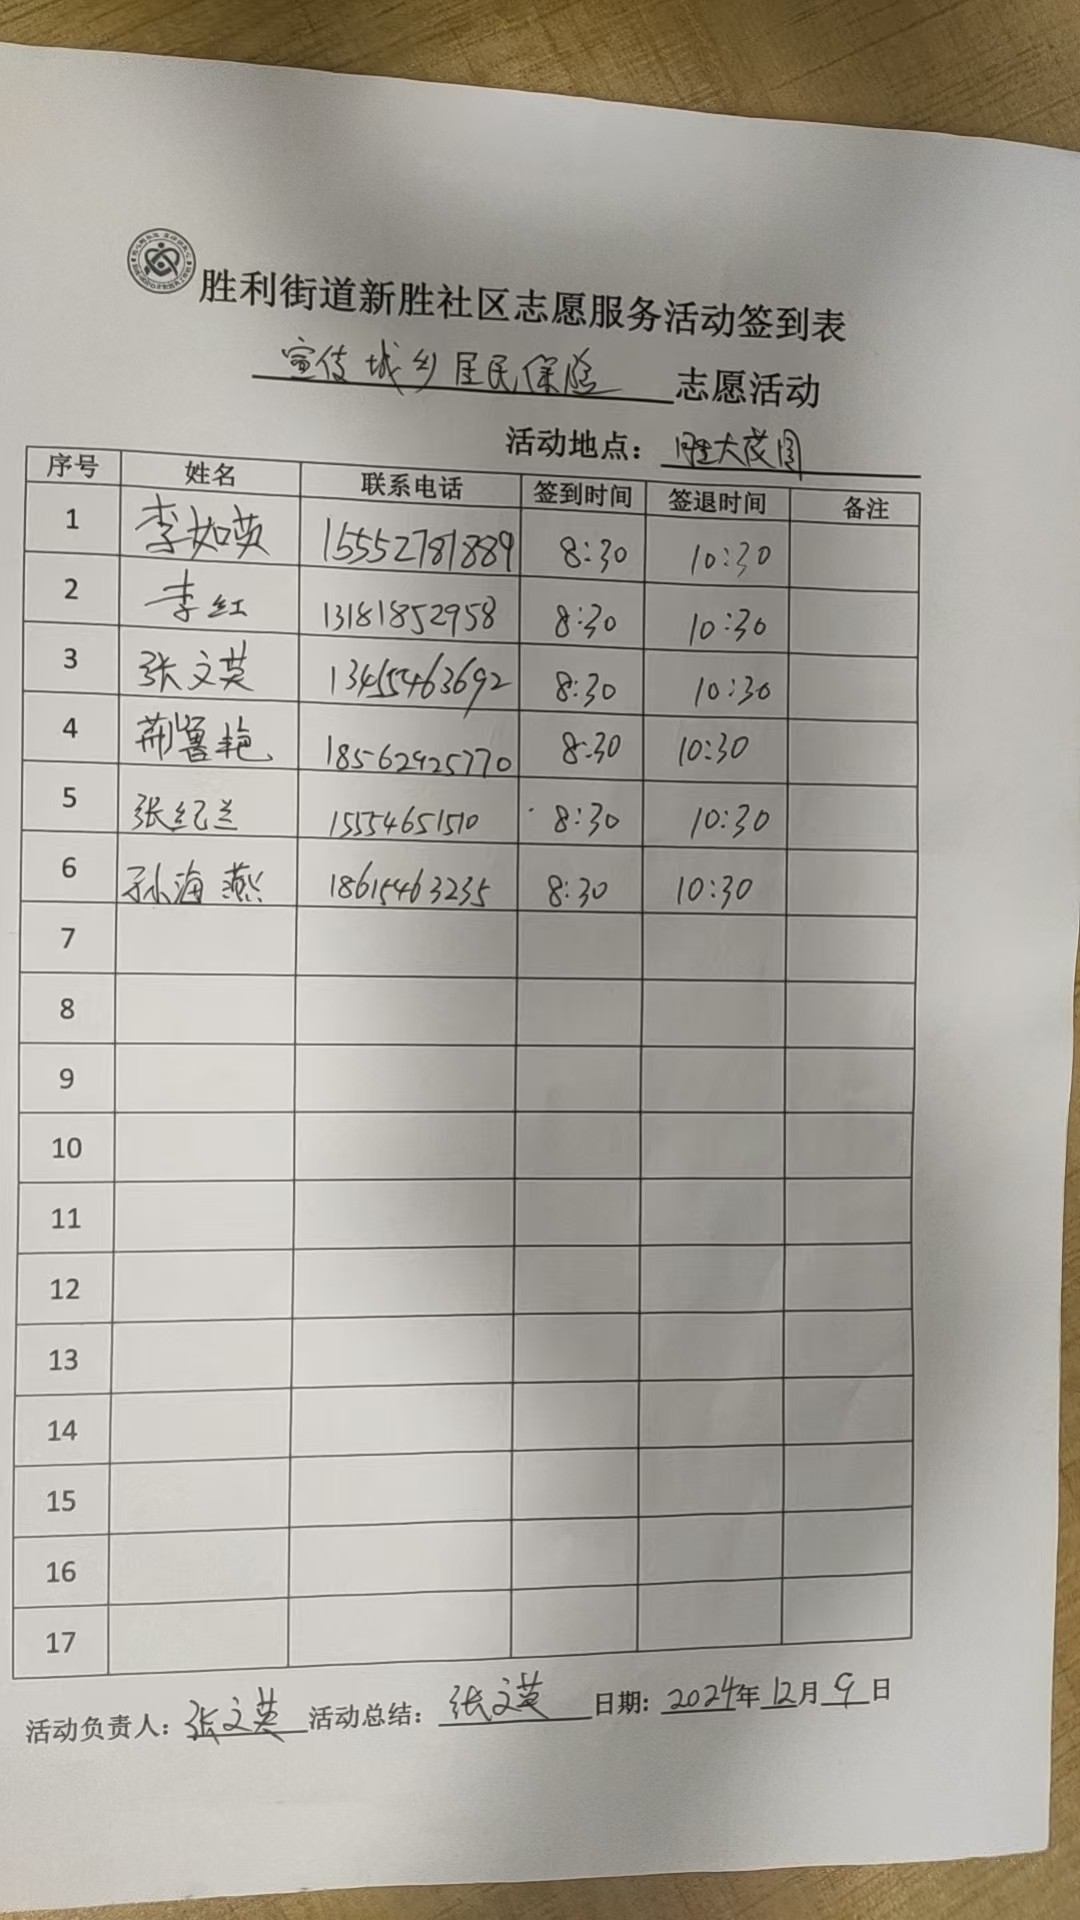 胜利街道新胜社区志愿服务活动签到表
宣传城乡居民保险 志愿活动
活动地点：胜大花园
序号 姓名 联系电话 签到时间 签退时间 备注
1 李如英 15552781889 8:30 10:30
2 李红 13181852958 8:30 10:30
3 张文英 13455463692 8:30 10:30
4 荆鲁艳 18562925770 8:30 10:30
5 张纪兰 15554651510 8:30 10:30
6 孙海燕 18615463235 8:30 10:30
7
8
9
10
11
12
13
14
15
16
17
活动负责人：张文英 活动总结：张文英 日期：2024年12月9日